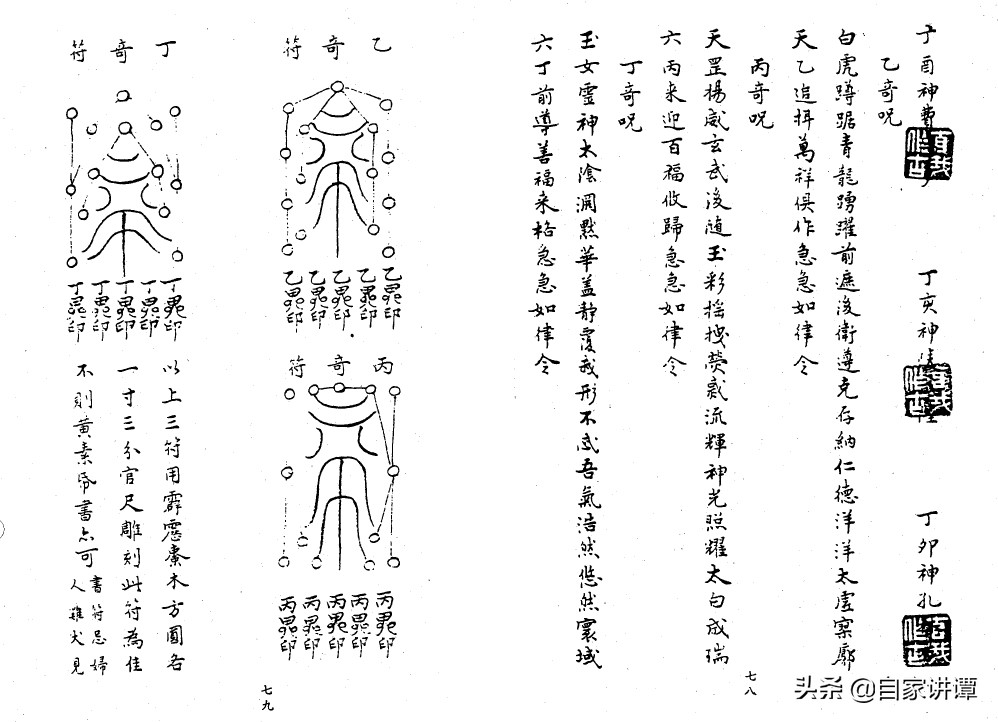 丁酉神費
丁亥神陸
丁卯神孔
乙奇呪
白虎蹲踞青龍踴躍前遮後衛遵克存納仁德洋洋太虛寥廓
天乙追捍萬祥俱作急急如律令
丙奇呪
天罡揚威玄武後隨玉彩搖拽熒惑流輝神光照耀太白成瑞
六丙來迎百福攸歸急急如律令
丁奇呪
玉女靈神太陰淵默華蓋靜覆我形不忒吾氣浩然悠然寰域
六丁前導善福來格急急如律令
七八
乙奇符
乙 印
乙 印
乙 印
乙 印
乙 印
丙奇符
丙 印
丙 印
丙 印
丙 印
丙 印
丁奇符
丁 印
丁 印
丁 印
丁 印
丁 印
以上三符用霹靂棗木方圓各
一寸三分官尺雕刻此符為佳
不則黃素帋書亦可
書符忌婦
人雞犬見
七九
头条 @自家讲谭